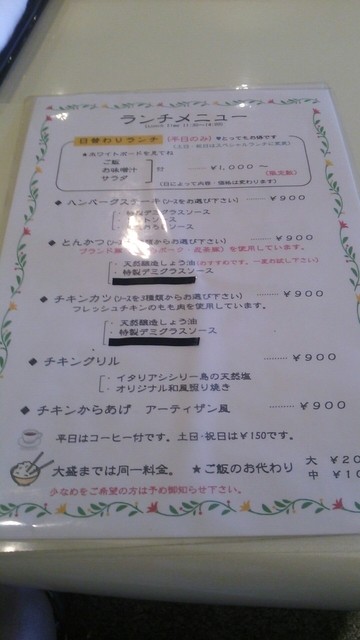 ランチメニュー
日替わりランチ (平日のみ) ★とってもお得です
(土日・祝日はスペシャルランチに変更)
★ホワイトボードを見てね
ご飯
お味噌汁 付 ¥1,000～
サラダ (限定数)
(日によって内容・価格は変わります)
◆ ハンバーグステーキ(ソースをお選び下さい) ……… ¥900
・特製デミグラスソース
◆ とんかつ ¥900
を使用しています。
・天然醸造しょう油(おすすめです。一度お試し下さい)
・特製デミグラスソース
◆ チキンカツ(ソースを3種類からお選び下さい) ……… ¥900
フレッシュチキンのもも肉を使用しています。
・天然醸造しょう油
・特製デミグラスソース
◆ チキングリル ……… ¥900
・イタリアシシリー島の天然塩
・オリジナル和風照り焼き
◆ チキンからあげ アーティザン風 ……… ¥900
平日はコーヒー付です。土日・祝日は¥150です。
大盛までは同一料金。 ★ご飯のお代わり 大 ¥20
中 ¥10
少なめをご希望の方は予め御知らせ下さい。